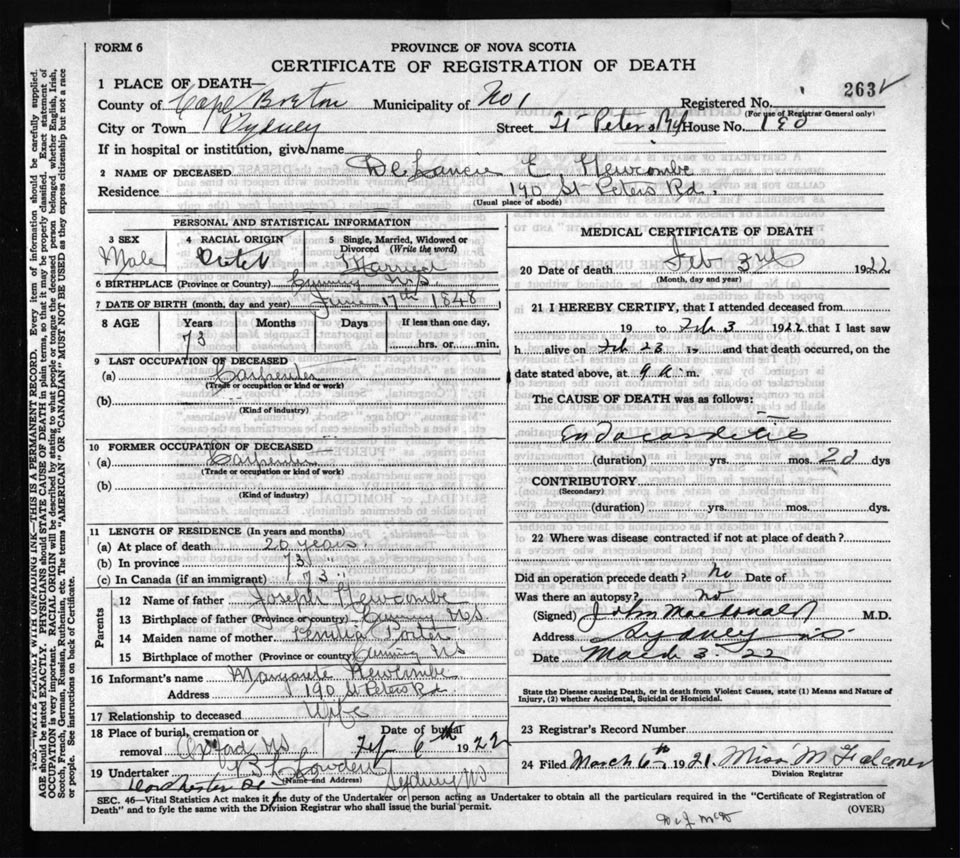 FORM 6
PROVINCE OF NOVA SCOTIA
CERTIFICATE OF REGISTRATION OF DEATH
2632
1 PLACE OF DEATH—
County of Cape Breton Municipality of No 1 Registered No.
(For use of Registrar General only)
City or Town Sydney Street St Peters Rd House No. 190
If in hospital or institution, give name
2 NAME OF DECEASED DeLancie E Newcombe
Residence 190 St Peters Rd
(Usual place of abode)
PERSONAL AND STATISTICAL INFORMATION
3 SEX
Male
4 RACIAL ORIGIN
5 Single, Married, Widowed or Divorced (Write the word)
Married
6 BIRTHPLACE (Province or Country) Canning N.S.
7 DATE OF BIRTH (month, day, and year) June 17th 1848
8 AGE Years Months Days If less than one day,
73 hrs. or min.
9 LAST OCCUPATION OF DECEASED
(a) Carpenter
(Trade or occupation or kind or work)
(b)
(Kind of industry)
10 FORMER OCCUPATION OF DECEASED
(a) Carpenter
(Trade or occupation or kind or work)
(b)
(Kind of industry)
11 LENGTH OF RESIDENCE (In years and months)
(a) At place of death 20 years.
(b) In province 73 "
(c) In Canada (if an immigrant) 73 "
Parents
12 Name of father Joseph Newcombe
13 Birthplace of father (Province or country) Canning NS
14 Maiden name of mother Porter
15 Birthplace of mother (Province or country) Canning NS
16 Informant's name Newcombe
Address 190 St Peters Rd
17 Relationship to deceased Wife
18 Place of burial, cremation or removal Oxford NS
Date of burial
Feb 6th 1922
19 Undertaker
(Name and Address)
Sydney NS
MEDICAL CERTIFICATE OF DEATH
20 Date of death Feb 3rd 1922
(Month, day and year)
21 I HEREBY CERTIFY, that I attended deceased from
19 to Feb 3 1922 that I last saw
h alive on Feb 23 19 and that death occurred, on the
date stated above, at 9 a m.
The CAUSE OF DEATH was as follows:
Endocarditis
(duration) yrs. mos. 20 dys
CONTRIBUTORY
(Secondary)
(duration) yrs. mos. dys.
22 Where was disease contracted if not at place of death?
Did an operation precede death? No Date of
Was there an autopsy? no
(Signed) John MacDonald M.D.
Address Sydney NS
Date March 3 22
State the Disease causing Death, or in death from Violent Causes, state (1) Means and Nature of Injury, (2) whether Accidental, Suicidal or Homicidal.
23 Registrar's Record Number
24 Filed March 6th 1921 Miss M Falconer
Division Registrar
SEC. 46—Vital Statistics Act makes it the duty of the Undertaker or person acting as Undertaker to obtain all the particulars required in the "Certificate of Registration of
Death" and to fyle the same with the Division Registrar who shall issue the burial permit. (OVER)
N.B.—WRITE PLAINLY WITH UNFADING INK—THIS IS A PERMANENT RECORD. Every item of information should be carefully supplied.
AGE should be stated EXACTLY. PHYSICIANS should STATE CAUSE OF DEATH in plain terms, so that it may be properly classified. Exact statement of
OCCUPATION is very important. RACIAL ORIGIN will be described by stating to what people or tongue the deceased person belonged whether English, Irish,
Scotch, French, German, Russian, Ruthenian, etc. The terms "AMERICAN" OR "CANADIAN" MUST NOT BE USED as they express citizenship but not a race
or people. See instructions on back of Certificate.